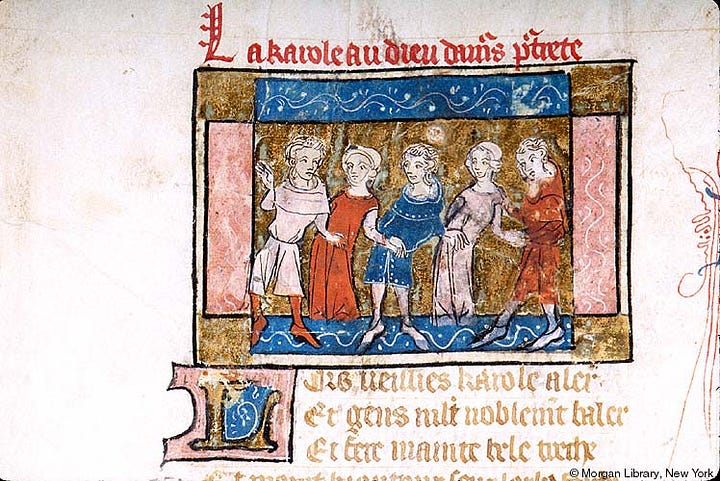 La karole au dieu damrs ptrete
Lors veissies karole aler
Et gens mlt noblemt baler
Et fere mainte bele treche
© Morgan Library, New York